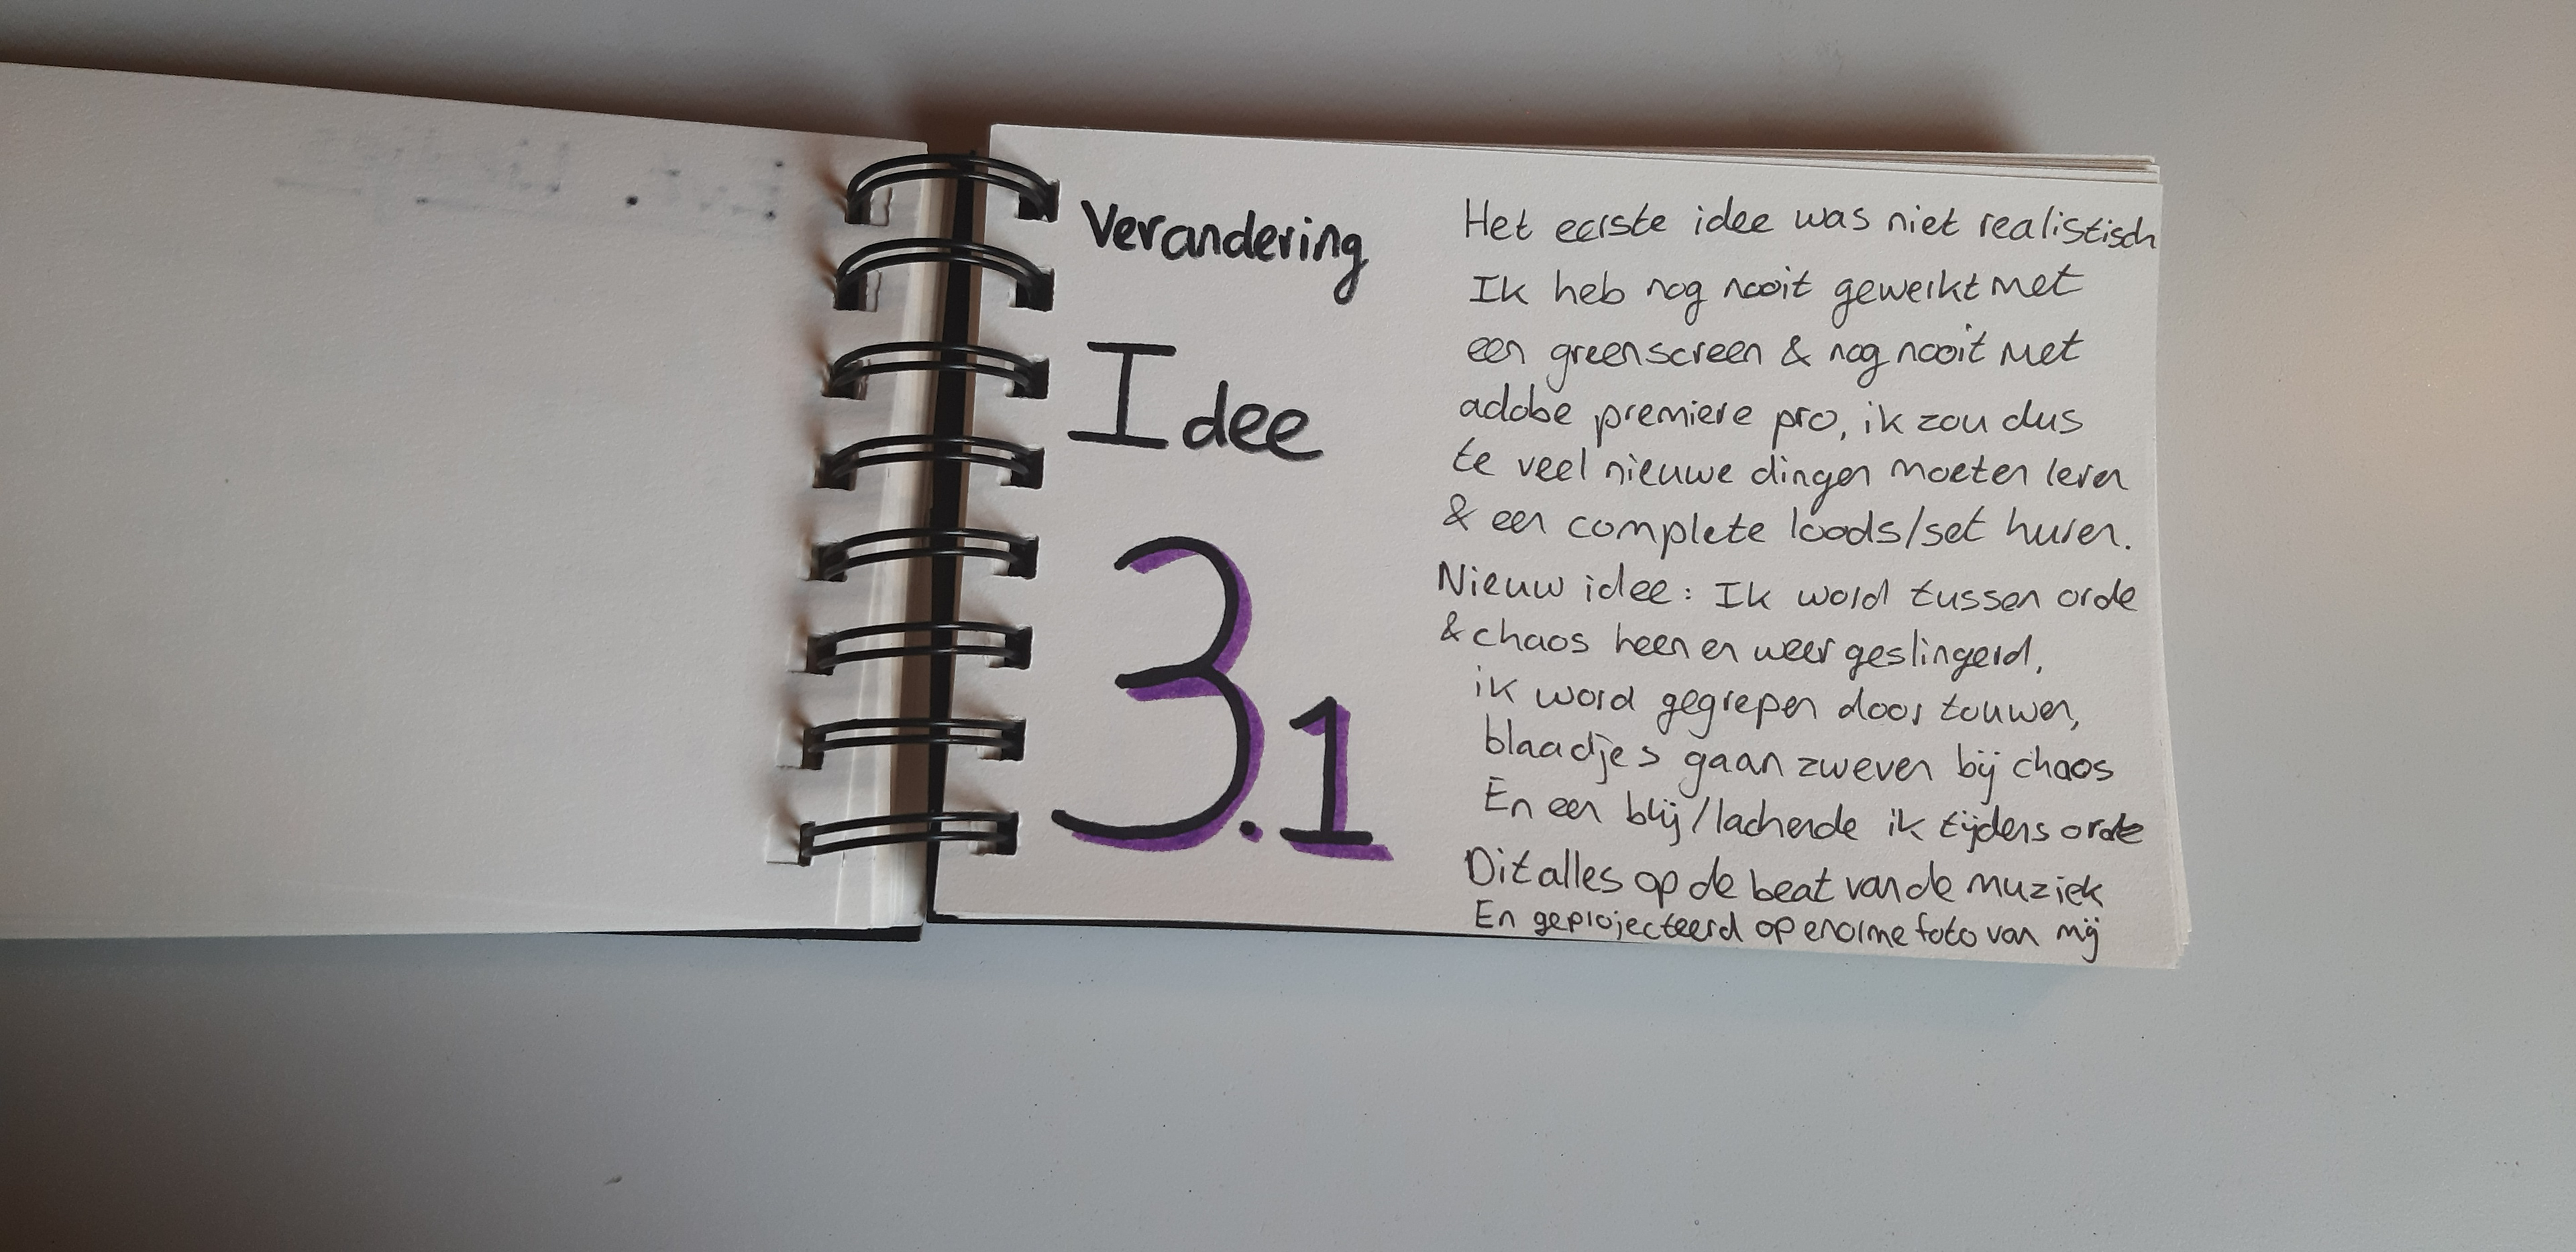 Verandering
Idee
3.1
Het eerste idee was niet realistisch
Ik heb nog nooit gewerkt met
een greenscreen & nog nooit met
adobe premiere pro, ik zou dus
te veel nieuwe dingen moeten leren
& een complete loods/set huren.
Nieuw idee: Ik word tussen orde
& chaos heen en weer geslingerd,
ik word gegrepen door touwen,
blaadjes gaan zweven bij chaos
En een blij/lachende ik tijdens orde
Dit alles op de beat van de muziek
En geprojecteerd op enorme foto van mij